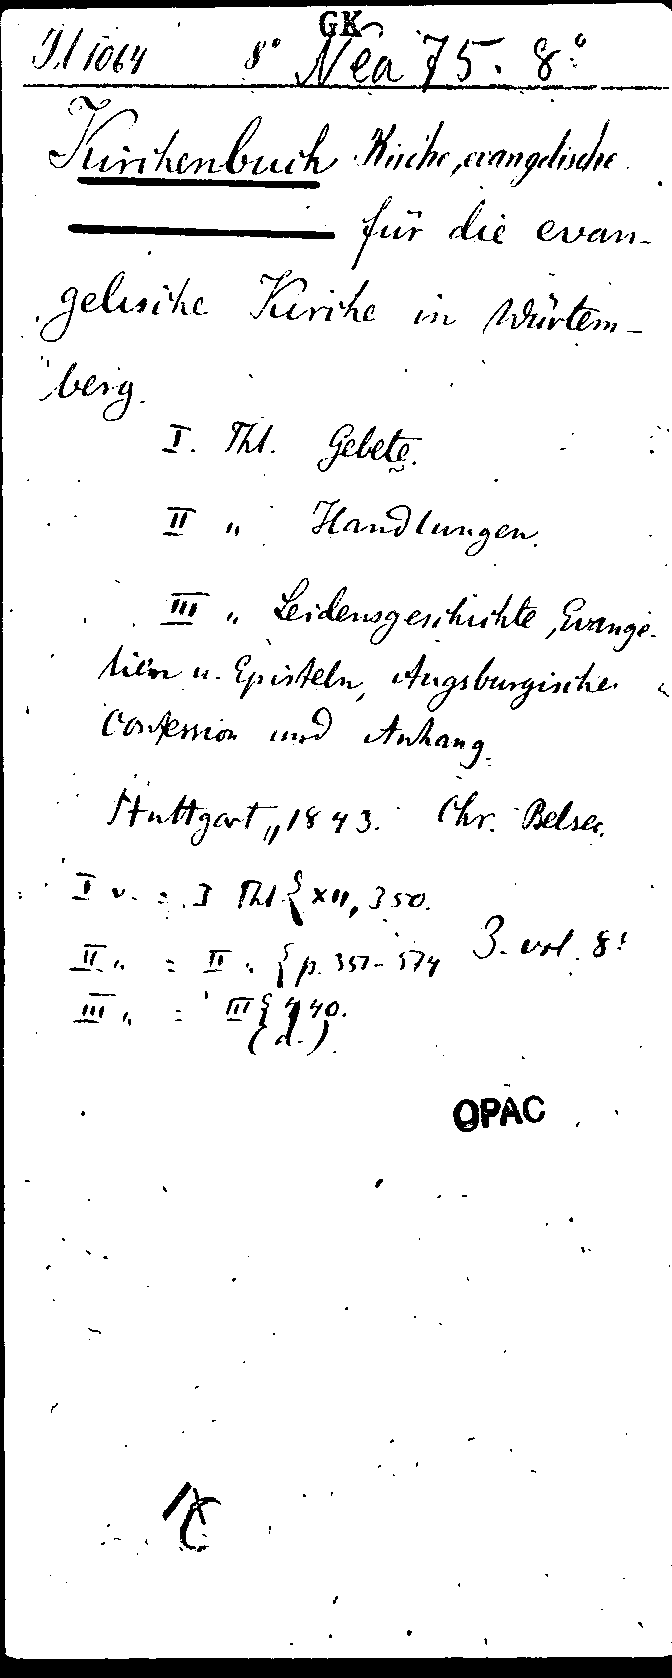 GK
8° Nea 75. 8°
Kirchenbuch Kirche, evangelische
für die evan-
gelische Kirche in Würtem-
berg.
I. Thl. Gebete.
II " Handlungen.
III " Leidensgeschichte, Evange-
lien u. Episteln, Augsburgische
Confession und Anhang.
Stuttgart, 1843. Chr. Belser.
I v. = I Thl { XII, 350.
II " = II " { p. 351-574 3. vol. 8°
III " = III { 440.
(d.)
OPAC